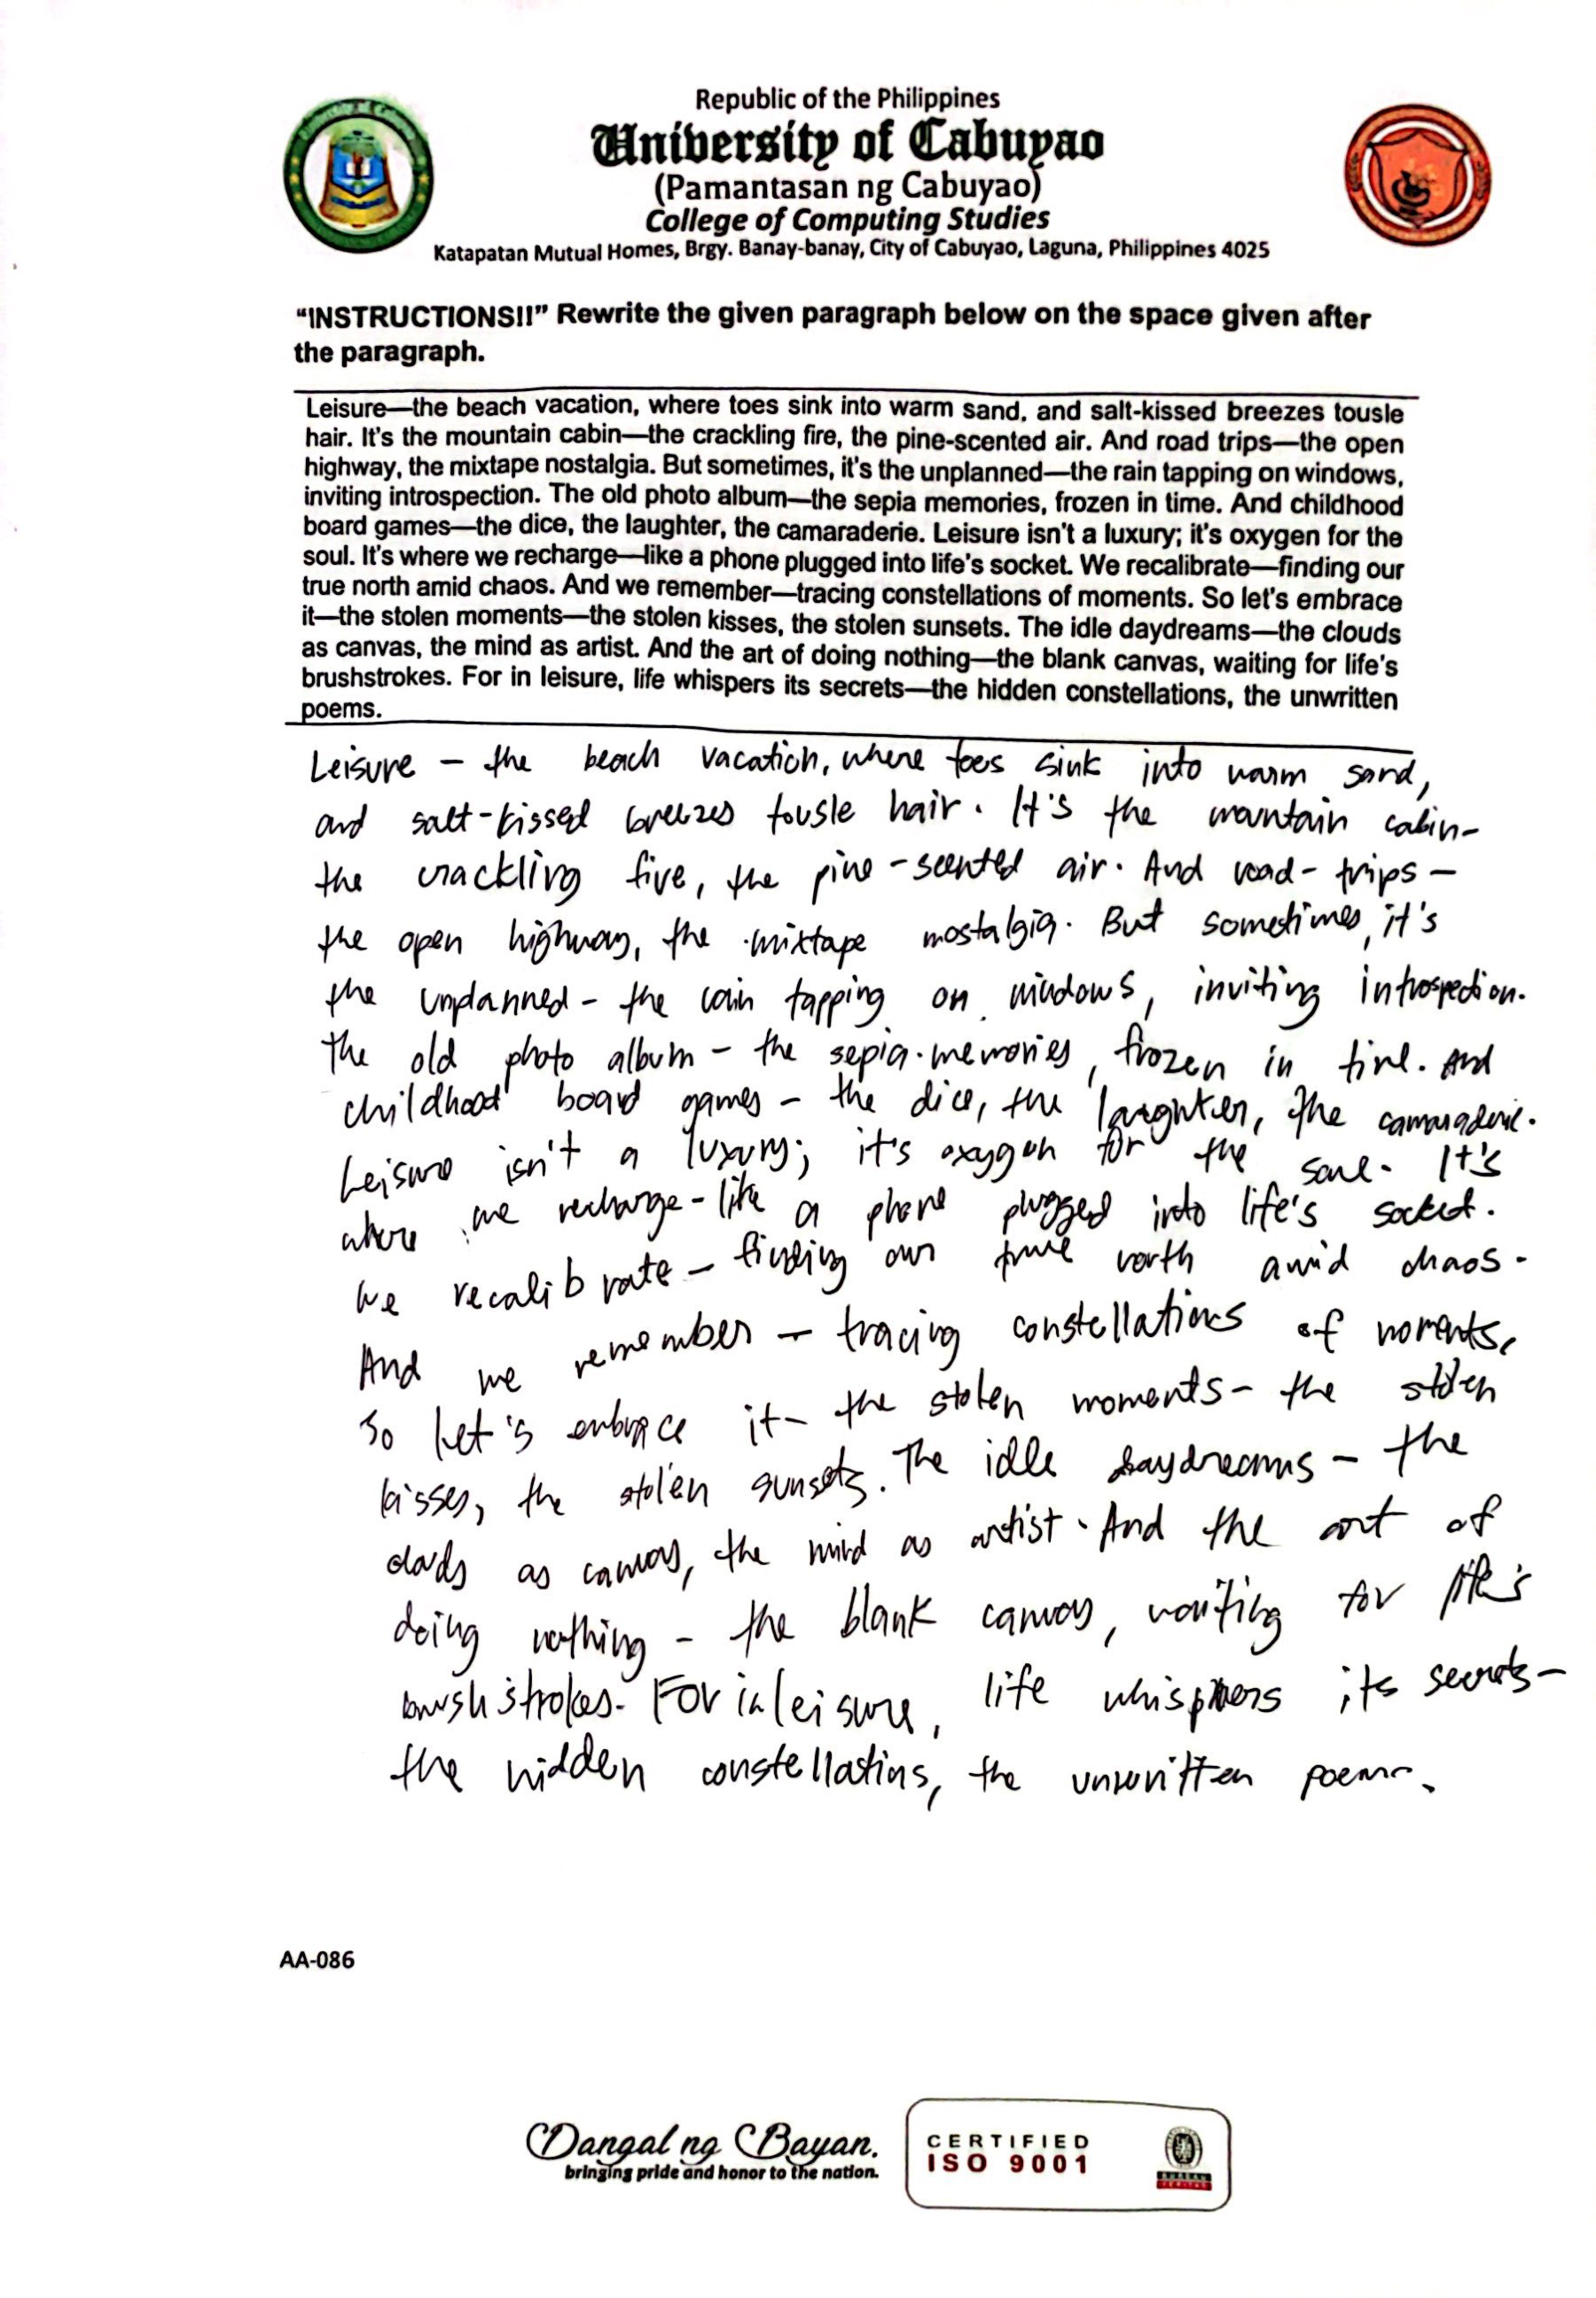 Republic of the Philippines
University of Cabuyao
(Pamantasan ng Cabuyao)
College of Computing Studies
Katapatan Mutual Homes, Brgy. Banay-banay, City of Cabuyao, Laguna, Philippines 4025
“INSTRUCTIONS!!” Rewrite the given paragraph below on the space given after
the paragraph.
Leisure—the beach vacation, where toes sink into warm sand, and salt-kissed breezes tousle
hair. It's the mountain cabin—the crackling fire, the pine-scented air. And road trips—the open
highway, the mixtape nostalgia. But sometimes, it's the unplanned—the rain tapping on windows,
inviting introspection. The old photo album—the sepia memories, frozen in time. And childhood
board games—the dice, the laughter, the camaraderie. Leisure isn't a luxury; it's oxygen for the
soul. It's where we recharge—like a phone plugged into life's socket. We recalibrate—finding our
true north amid chaos. And we remember—tracing constellations of moments. So let's embrace
it—the stolen moments—the stolen kisses, the stolen sunsets. The idle daydreams—the clouds
as canvas, the mind as artist. And the art of doing nothing—the blank canvas, waiting for life's
brushstrokes. For in leisure, life whispers its secrets—the hidden constellations, the unwritten
poems.
Leisure - the beach vacation, where toes sink into warm sand,
and salt-kissed breezes tousle hair. It's the mountain cabin-
the crackling fire, the pine-scented air. And road-trips-
the open highway, the mixtape nostalgia. But sometimes, it's
the unplanned - the rain tapping on windows, inviting introspection.
The old photo album - the sepia memories, frozen in time. And
childhood board games - the dice, the laughter, the camaraderie.
Leisure isn't a luxury; it's oxygen for the soul. It's
where we recharge - like a phone plugged into life's socket.
We recalibrate - finding our true north amid chaos.
And we remember - tracing constellations of moments.
So let's embrace it - the stolen moments - the stolen
kisses, the stolen sunsets. The idle daydreams - the
clouds as canvas, the mind as artist. And the art of
doing nothing - the blank canvas, waiting for life's
brushstrokes. For in leisure, life whispers its secrets-
the hidden constellatins, the unwritten poems.
AA-086
Dangal ng Bayan.
bringing pride and honor to the nation.
CERTIFIED
ISO 9001